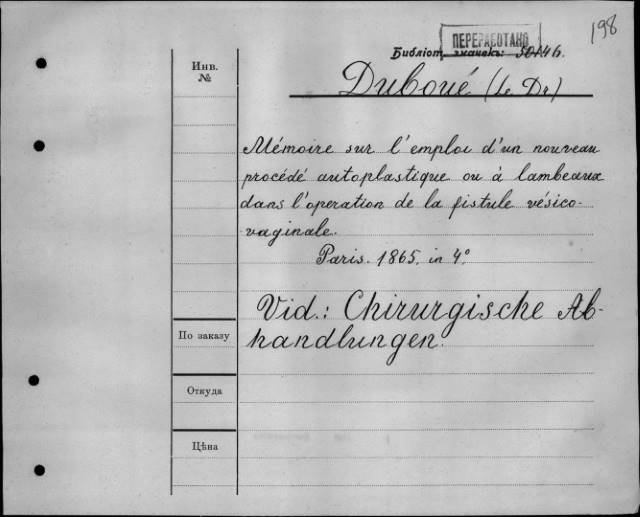 198
ПЕРЕРАБОТАНО
Библіот. значекъ:
Инв.
№
Duboué (le Dr)
Mémoire sur l'emploi d'un nouveau
procédé autoplastique ou à lambeaux
dans l'operation de la fistule vésico-
-vaginale.
Paris. 1865. in 4°
Vid.: Chirurgische Ab-
handlungen.
По заказу
Откуда
Цѣна